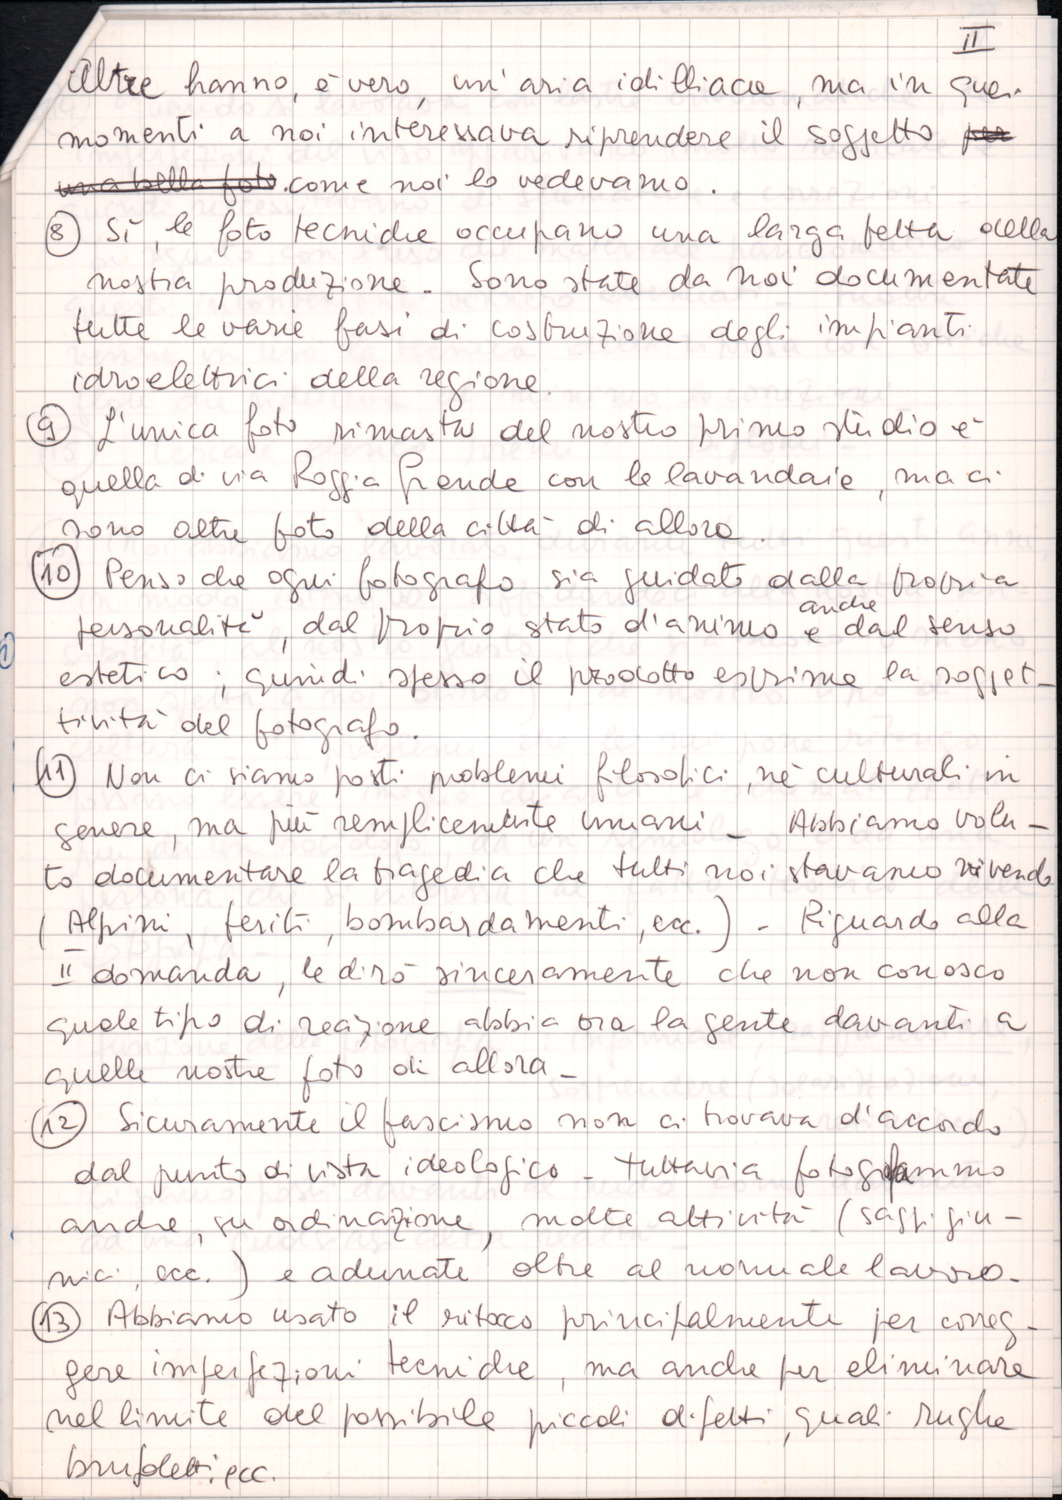 II
Altre hanno, è vero, un'aria idilliaca, ma in quei
momenti a noi interessava riprendere il soggetto per
una bella foto. come noi lo vedevamo.
8 Sì, le foto tecniche occupano una larga fetta della
nostra produzione. Sono state da noi documentate
tutte le varie fasi di costruzione degli impianti
idroelettrici della regione.
9 L'unica foto rimasta del nostro primo studio è
quella di via Roggia Grande con le lavandaie, ma ci
sono altre foto della città di allora.
10 Penso che ogni fotografo sia guidato dalla propria
anche
personalità, dal proprio stato d'animo e dal senso
estetico; quindi spesso il prodotto esprime la sogget-
tività del fotografo.
11 Non ci siamo posti problemi filosofici, né culturali in
genere, ma più semplicemente umani - Abbiamo volu-
to documentare la tragedia che tutti noi stavamo vivendo
(Alpini, feriti, bombardamenti, ecc.) - Riguardo alla
II domanda, le dirò sinceramente che non conosco
quale tipo di reazione abbia ora la gente davanti a
quelle nostre foto di allora -
12 Sicuramente il fascismo non ci trovava d'accordo
dal punto di vista ideologico - tuttavia fotografammo
anche, su ordinazione, molte attività (saggi gin-
nici, ecc.) e adunate oltre al normale lavoro.
13 Abbiamo usato il ritocco principalmente per correg-
gere imperfezioni tecniche, ma anche per eliminare
nel limite del possibile piccoli difetti, quali rughe
brufoletti, ecc.